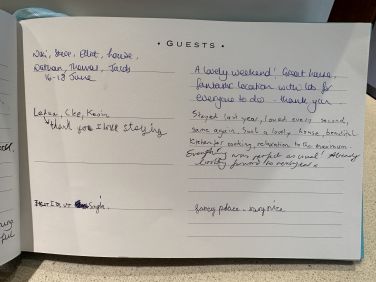 • GUESTS •
Steve, Elliot, Louise,
Thomas, Jacob
16-18 June
A lovely weekend! Great house,
fantastic location with lots for
everyone to do - thank you
Clee, Kevin
thank you I love staying
Stayed last year, loved every second,
same again. Such a lovely house, beautiful
kitchen for cooking, relaxation to the maximum.
Everything was perfect as usual! Already
looking forward to next year x
fancy place - very nice